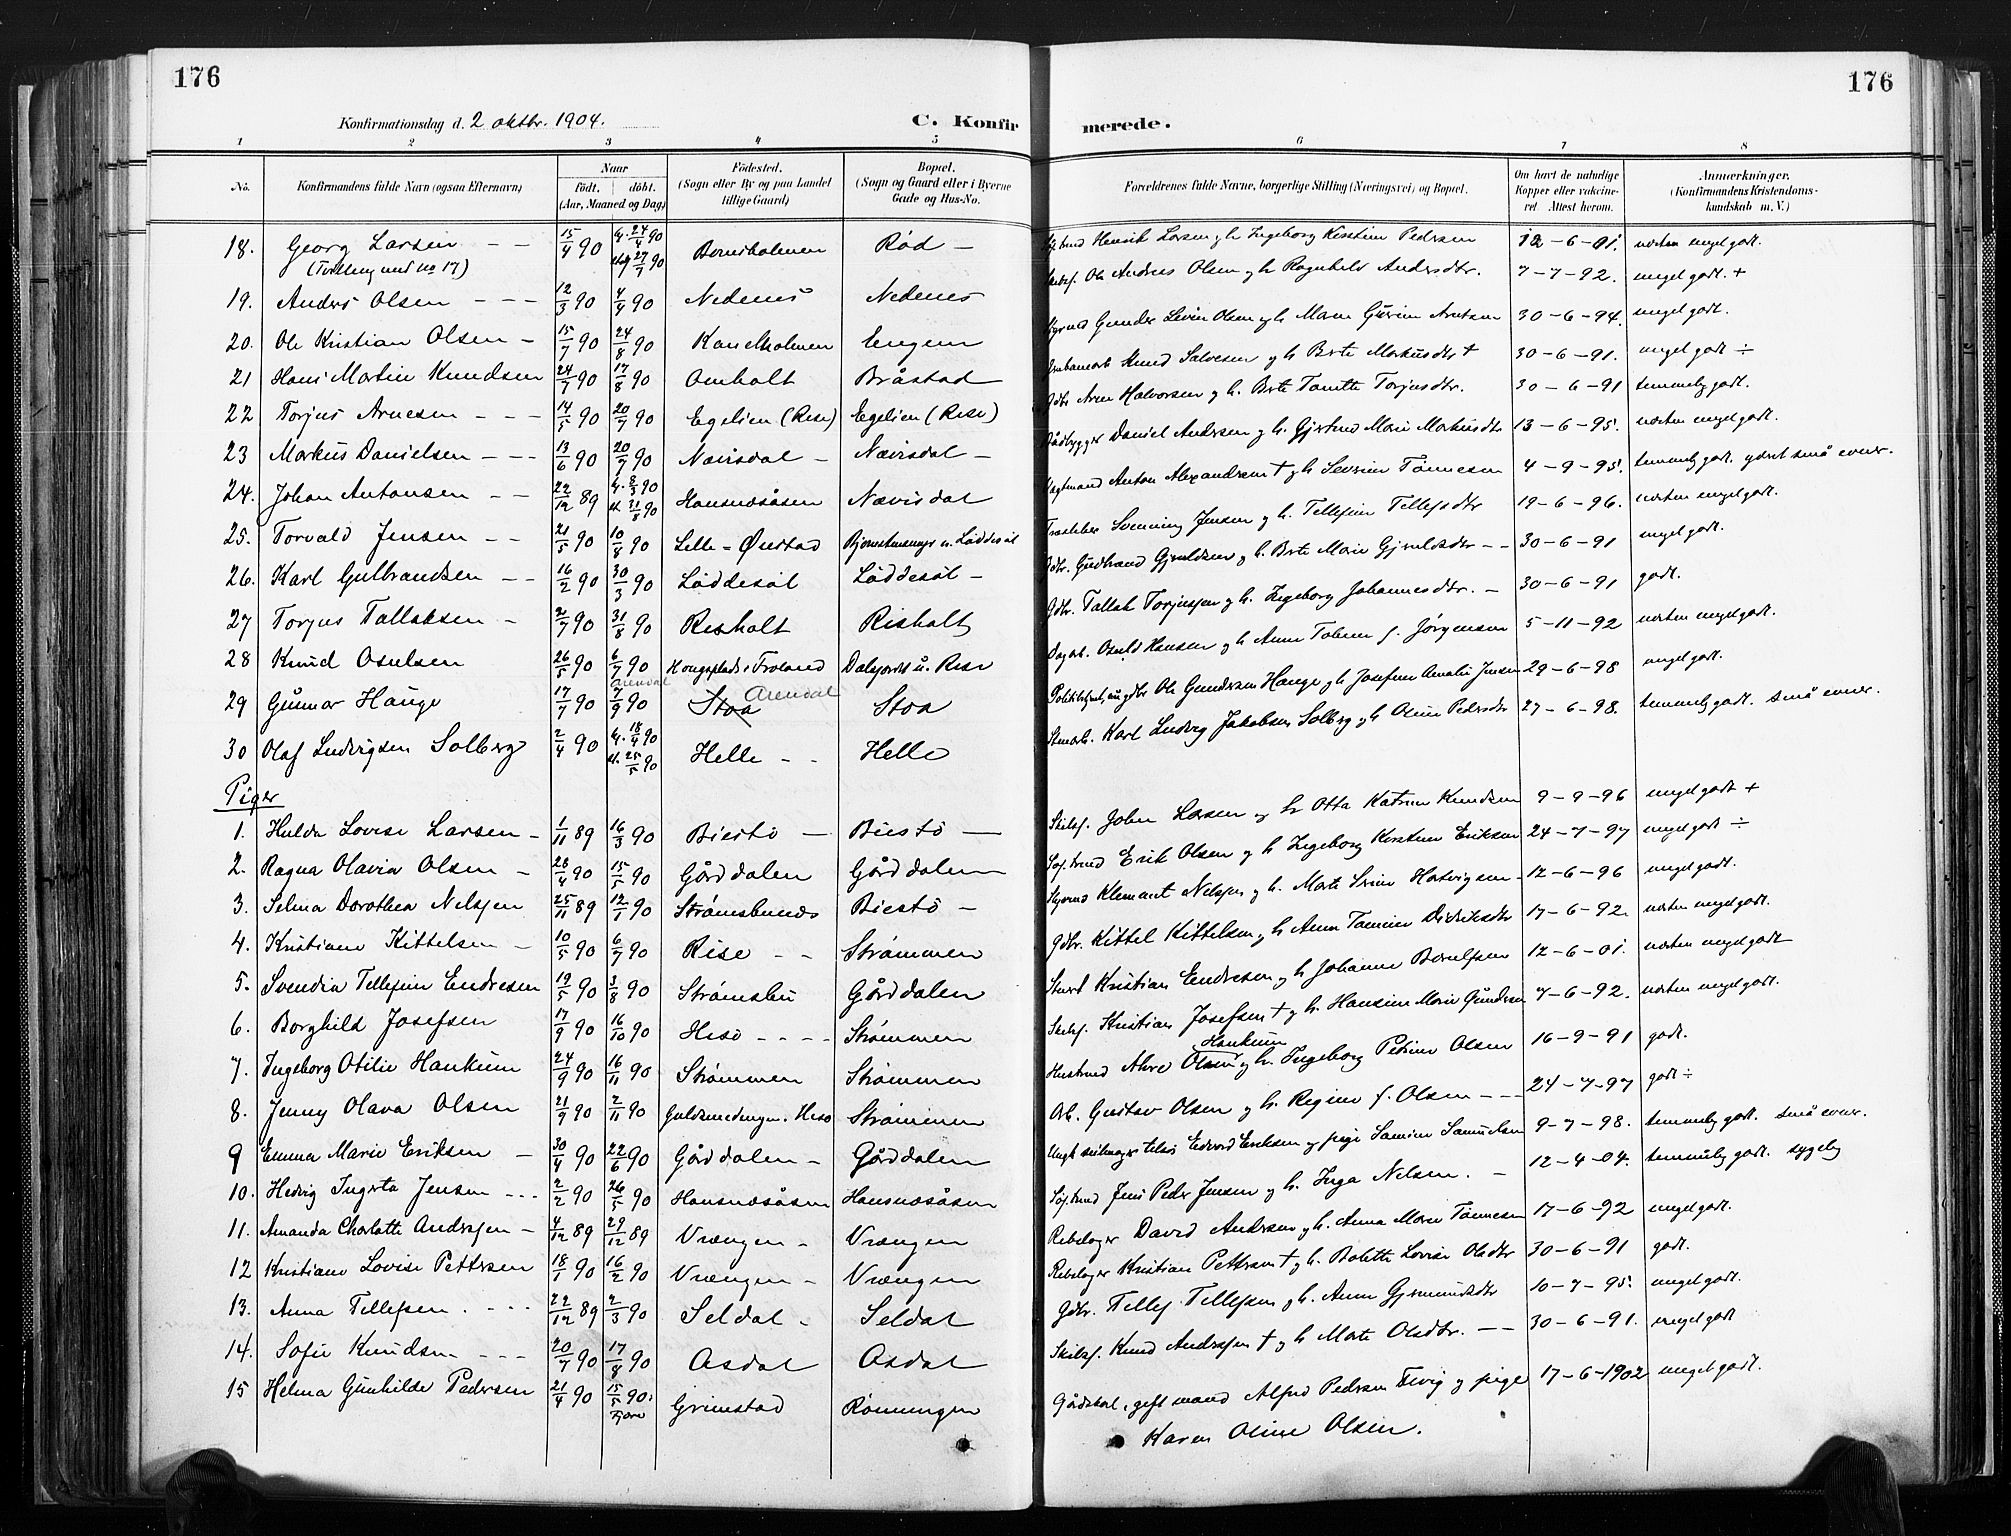 176
176
Konfirmationsdag d. 2 oktbr. 1904.
C. Konfirmerede.
1 2 3 4 5 6 7 8
No. Konfirmandens fulde Navn (ogsaa Efternavn) Naar født. døbt. (Aar, Maaned og Dag) Fødested. (Sogn eller By og paa Landet tillige Gaard) Bopæl. (Sogn og Gaard eller i Byerne Gade og Hus-No. Forældrenes fulde Navne, borgerlige Stilling (Næringsvei) og Bopæl. Om havt de naturlige Kopper eller vaccineret Attest herom. Anmærkninger. (Konfirmandens Kristendomskundskab m. V.)
18. Georg Larsen - - 15/4 90 24/4 90 Bomsholmen Rød - Henrik Larsen og h. Ingeborg Kirstine Pedersen 12-6-01. næsten meget godt.
(Tvilling med no 17) 27/7 90
19. Anders Olsen - - - 12/3 90 4/4 90 Nedenes Nedenes Ole Andreas Olsen og h. Ragnhild Andersdtr. 7-7-92. meget godt. +
20. Ole Kristian Olsen - 15/7 90 24/8 90 Kanelholmen Engene Gunder Levin Olsen og h. Maren Gurine Arntsen 30-6-94. meget godt.
21 Hans Martin Knudsen 24/7 90 17/8 90 Omholt Bråstad Knud Salvesen og h. Berte Markusdtr + 30-6-91. meget godt ÷
22 Torjus Arnesen - - - 14/5 90 20/7 90 Egelien (Rise) Egelien (Rise) Gdbr. Arne Halvorsen og h. Berte Tomette Torjusdtr. 30-6-91 temmelig godt.
23 Markus Danielsen - - - 13/6 90 20/7 90 Nævisdal - Nævisdal - Bådbygger Daniel Andersen og h. Gjertrud Marie Markusdtr 13-6-95. næsten meget godt.
24. Johan Antonsen - - 22/12 89 8/3 90 31/8 90 Hansnesåsen Nævisdal Anton Alexandersen + og h. Severine Tønnesen 4-9-95. temmelig godt. ydret små evner.
25. Torvald Jensen - - 21/5 90 10/8 90 Lille-Øiestad Bjørnemunsmyr u. Løddesøl Svenning Jensen og h. Tellefine Tellefsdtr 19-6-96. næsten meget godt.
26. Karl Gulbrandsen - - 16/2 90 30/3 90 Løddesøl Løddesøl - Gdbr. Gudbrand Gjeruldsen og h. Berte Marie Gjeruldsdtr - - 30-6-91 meget godt.
27 Torjus Tallaksen - 2/7 90 31/8 90 Risholt Risholt Gdbr. Tallak Torjussen og h. Ingeborg Johannesdtr. - 30-6-91 godt.
28 Knud Osulsen 26/5 90 6/7 90 Hougeplads i Froland Dalsfordet u. Rise Dagarb. Osuld Hansen og h. Anne Tobine f. Jörgensen 5-11-92 næsten meget godt.
29 Gunnar Hauge 17/7 90 Arendal 7/9 90 Stoa Arendal Stoa Ole Gundersen Hauge og h. Josefine Amalie Jensen 29-6-98 meget godt.
30 Olaf Ludvigsen Solberg 2/4 90 18/4 90 25/5 90 Helle - - Helle Karl Ludvig Jakobsen Solberg og h. Osine Pedersdtr 27-6-98. temmelig godt. små evner.
Piger
1. Hulda Lovise Larsen - 1/11 89 16/3 90 Biestö - Biestö - Skibsf. John Larsen og h. Otta Katrine Knudsen 9-9-96 meget godt +
2. Ragna Olavia Olsen - 28/4 90 15/5 90 Gårddalen Gårddalen Erik Olsen og h. Ingeborg Kirstine Eriksen 24-7-97 meget godt ÷
3. Selma Dorothea Nelsen 25/11 89 12/1 90 Strømsbunes Biestö - Klement Nelsen og h. Marte Severine Hartvigsen - 12-6-96 meget godt.
4. Kristiane Kittelsen - 10/5 90 6/7 90 Rise - - Strømmen Gdbr. Kittel Kittelsen og h. Anne Tomine Didriksdtr 17-6-92. næsten meget godt.
5. Svendia Tellefine Endresen 19/5 90 3/8 90 Strømsbu Gårddalen Kristian Endresen og h. Johanne Berulfsen 12-6-01. næsten meget godt
6. Borghild Josefsen 17/9 90 16/10 90 Hisö - - - - Strömmen Skibsf. Kristian Josefsen + og h. Hansine Marie Gundersen 7-6-92. næsten meget godt.
7. Ingeborg Otilie Hankum 24/9 90 16/11 90 Strømmen Strømmen Ahre Olsen Hankum og h. Ingeborg Petrine Olsen 16-9-91 godt.
8. Jenny Olava Olsen 21/9 90 2/11 90 Guldsmedengen. Hisö Strømmen Arb. Gustav Olsen og h. Regine f. Olsen - - - 24-7-97 godt ÷
9 Emma Marie Eriksen - 30/4 90 22/6 90 Gårddalen - Gårddalen Edvard Eriksen og pige Samine Samuelsen 9-7-98. temmelig godt. små evner.
10. Hedvig Ingerta Jensen - - - 2/2 90 26/5 90 Hansnesåsen Hansnesåsen Jens Peder Jensen og h. Inga Nelsen. - 12-4-04. temmelig godt. sygelig
11. Amanda Charlotte Andersen - 4/12 89 29/12 89 Vrængen - Vrængen Rebslager David Andersen og h. Anna Marie Tønnesen 17-6-92 meget godt.
12 Kristiane Lovise Pettersen 18/1 90 16/2 90 Vrængen - Vrængen Rebslager Kristian Pettersen + og h. Bolette Lovise Olsdtr 30-6-91 godt.
13. Anna Tellefsen. - - - 22/12 89 2/3 90 Seldal - Seldal Gdbr. Tellef Tellefsen og h. Anne Gjermundsdtr 10-7-95. meget godt.
14. Sofie Knudsen - - - 20/7 90 17/8 90 Asdal Asdal Skibsf. Knud Andersen + og h. Marte Olsdtr. - - 30-6-91. meget godt
15 Helma Gunhilde Pedersen 21/4 90 15/5 90. Fjære Grimstad Rønningen Gårdskarl, gift mand Alfred Pedersen Tvig og pige 17-6-1902 meget godt.
Karen Oline Olsen.